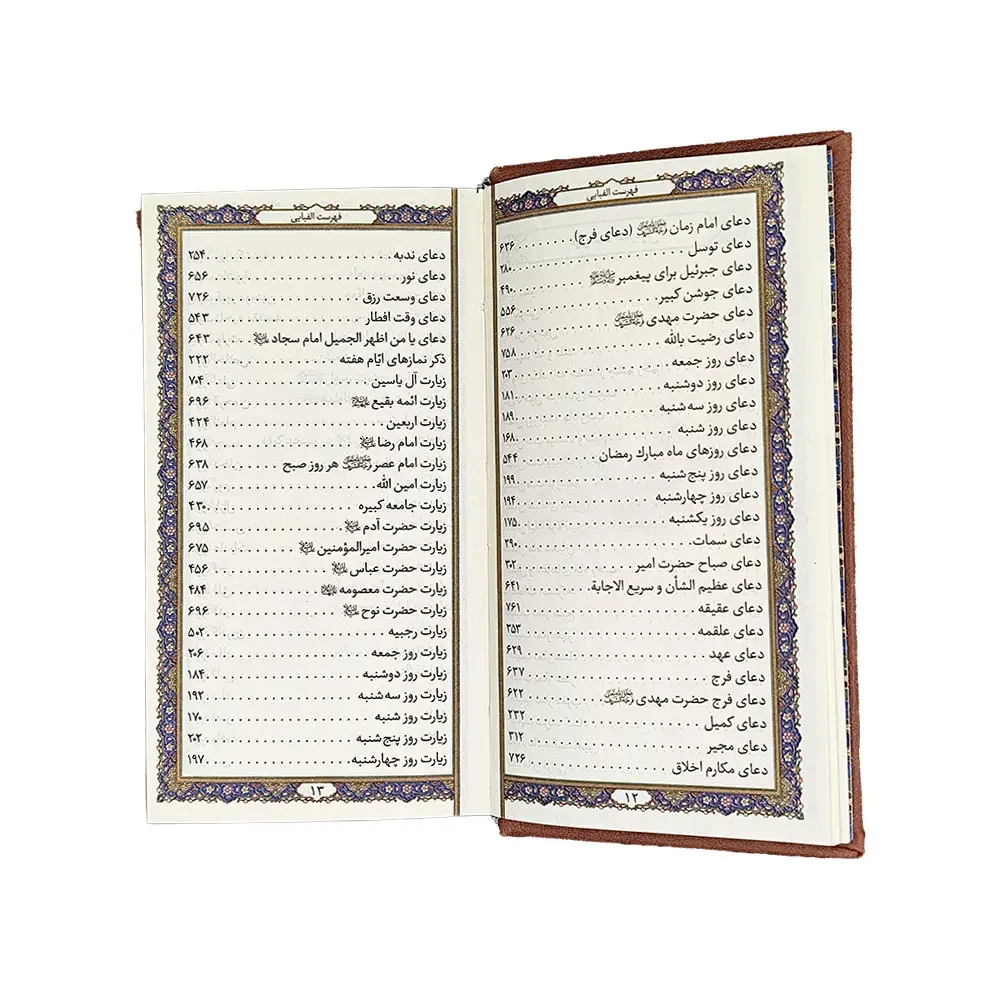 فهرست الفبایی
دعای امام زمان (دعای فرج) . . . . . . . ۶۳۶
دعای توسل . . . . . . . ۲۸۰
دعای جبرئیل برای پیغمبر ﷺ . . . . . . . ۴۹۰
دعای جوشن کبیر . . . . . . . ۵۵۶
دعای حضرت مهدی . . . . . . . ۶۲۶
دعای رضیت بالله . . . . . . . ۷۵۸
دعای روز جمعه . . . . . . . ۲۰۳
دعای روز دوشنبه . . . . . . . ۱۸۱
دعای روز سه‌شنبه . . . . . . . ۱۸۹
دعای روز شنبه . . . . . . . ۱۶۸
دعای روزهای ماه مبارك رمضان . . . . . . . ۵۴۴
دعای روز پنج‌شنبه . . . . . . . ۱۹۹
دعای روز چهارشنبه . . . . . . . ۱۹۴
دعای روز یکشنبه . . . . . . . ۱۷۵
دعای سمات . . . . . . . ۲۹۰
دعای صباح حضرت امیر . . . . . . . ۳۰۲
دعای عظیم الشأن و سریع الاجابة . . . . . . . ۶۴۱
دعای عقیقه . . . . . . . ۷۶۱
دعای علقمه . . . . . . . ۳۵۳
دعای عهد . . . . . . . ۶۲۹
دعای فرج . . . . . . . ۶۳۷
دعای فرج حضرت مهدی . . . . . . . ۶۲۲
دعای کمیل . . . . . . . ۲۳۲
دعای مجیر . . . . . . . ۳۱۲
دعای مکارم اخلاق . . . . . . . ۷۲۶
۱۲
فهرست الفبایی
دعای ندبه . . . . . . . ۲۵۴
دعای نور . . . . . . . ۶۵۶
دعای وسعت رزق . . . . . . . ۷۲۶
دعای وقت افطار . . . . . . . ۵۴۳
دعای یا من اظهر الجمیل امام سجاد . . . . . . . ۶۴۳
ذکر نمازهای ایّام هفته . . . . . . . ۲۲۲
زیارت آل یاسین . . . . . . . ۷۰۴
زیارت ائمه بقیع . . . . . . . ۶۹۶
زیارت اربعین . . . . . . . ۴۲۴
زیارت امام رضا . . . . . . . ۴۶۸
زیارت امام عصر هر روز صبح . . . . . . . ۶۳۸
زیارت امین الله . . . . . . . ۶۵۷
زیارت جامعه کبیره . . . . . . . ۴۳۰
زیارت حضرت آدم . . . . . . . ۶۹۵
زیارت حضرت امیرالمؤمنین . . . . . . . ۶۷۵
زیارت حضرت عباس . . . . . . . ۴۵۶
زیارت حضرت معصومه . . . . . . . ۴۸۴
زیارت حضرت نوح . . . . . . . ۶۹۶
زیارت رجبیه . . . . . . . ۵۰۲
زیارت روز جمعه . . . . . . . ۲۰۶
زیارت روز دوشنبه . . . . . . . ۱۸۴
زیارت روز سه‌شنبه . . . . . . . ۱۹۲
زیارت روز شنبه . . . . . . . ۱۷۰
زیارت روز پنج‌شنبه . . . . . . . ۲۰۲
زیارت روز چهارشنبه . . . . . . . ۱۹۷
۱۳